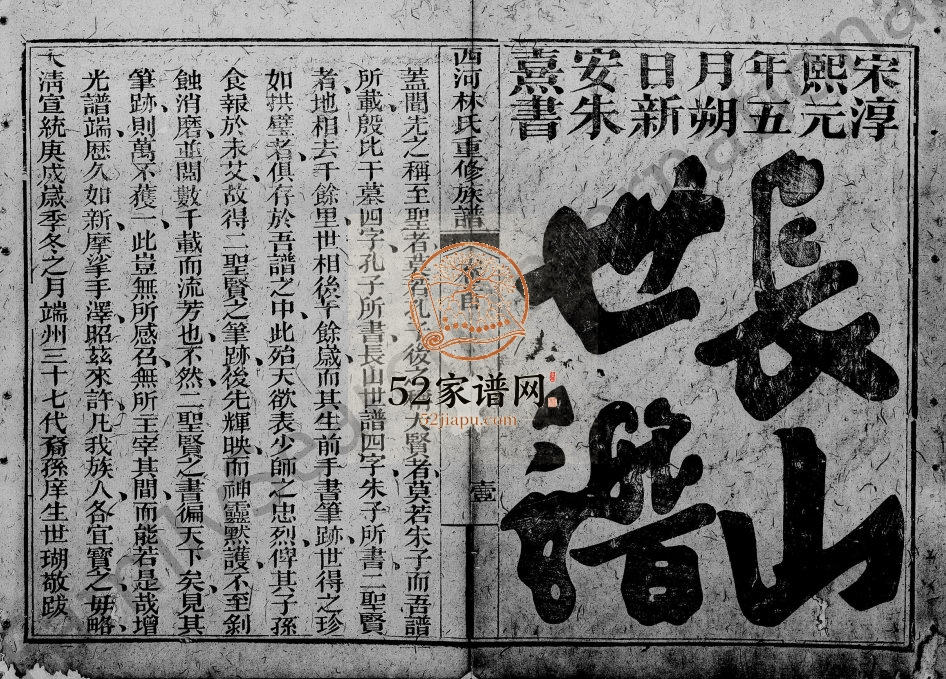 宋淳
熙元
年五
月朔
日新
安朱
熹書
長山
世譜
西河林氏重修族譜
壹
蓋聞先之稱至聖者莫若孔子後之 大賢者莫若朱子而吾譜
所載殷比干墓四字孔子所書長山世譜四字朱子所書二聖賢
者地相去千餘里世相後千餘歲而其生前手書筆跡世得之珍
如拱璧者俱存於吾譜之中此殆天欲表少師之忠烈俾其子孫
食報於未艾故得二聖賢之筆跡後先輝映而神靈默護不至剝
蝕消磨並閱數千載而流芳也不然二聖賢之書徧天下矣見其
筆跡則萬不獲一此豈無所感召無所主宰其間而能若是哉增
光譜端歷久如新摩挲手澤昭茲來許凡我族人各宜寶之毋略
大清宣統庚戌歲季冬之月端州三十七代裔孫庠生世瑚敬跋
52家谱网
52jiapu.com